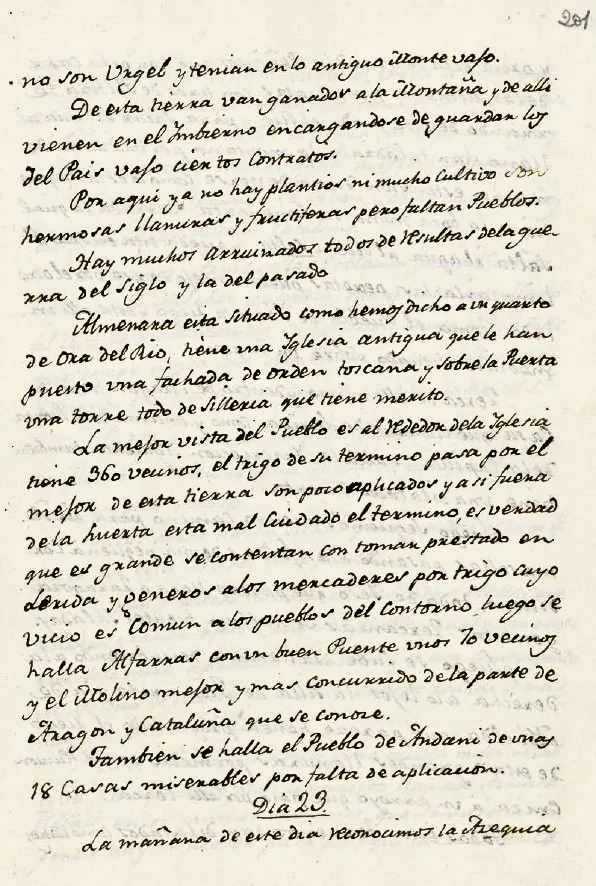 201
no son Urgel y tenian en lo antiguo Monte vajo.
De esta tierra van ganados a la Montaña y de alli
vienen en el Imbierno encargandose de guardar los
del Pais vajo ciertos Contratos.
Por aqui ya no hay plantios ni mucho Cultivo son
hermosas llanuras y fructiferas pero faltan Pueblos.
Hay muchos arruinados todos de resultas de la gue-
rra del siglo y la del pasado
Almenara esta situado como hemos dicho a un quarto
de Ora del Rio, tiene una Iglesia antigua que le han
puesto una fachada de orden toscana y sobre la Puerta
una torre todo de Silleria que tiene merito.
La mejor vista del Pueblo es al rededor de la Iglesia
tiene 360 vecinos, el trigo de su termino pasa por el
mejor de esta tierra son poco aplicados y asi fuera
de la huerta esta mal Cuidado el termino, es verdad
que es grande se contentan con tomar prestado en
Lerida y generos a los mercaderes por trigo cuyo
vicio es Comun a los pueblos del Contorno luego se
halla Alfarras con un buen Puente unos 70 vecinos
y el Molino mejor y mas concurrido de la parte de
Aragon y Cataluña que se conoce.
Tambien se halla el Pueblo de Andani de unas
18 Casas miserables por falta de aplicacion.
Dia 23.
La mañana de este dia reconocimos la Azequia